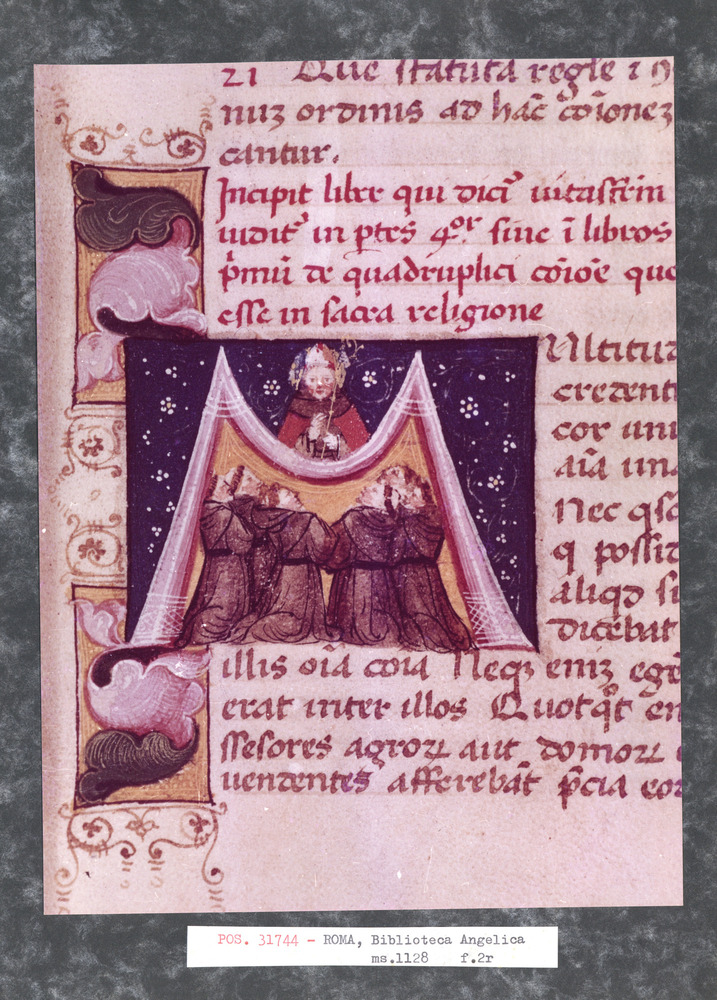 21 Que statuta regle ⁊
nuȝ ordinis ad hac̄ cōionez
cantur.
Incipit liber qui dici᷒ uitasfr̄m
iudit᷒ in ptes 4or siue ī libros
p̄mū de quadruplici cōioē que
esse in sacra religione
Multitu
credent
cor un
aīa un
Nec qs
q possid
aliqd s
dicebat
illis oīa coīa Neqȝ eniȝ ege
erat inter illos Quotqt en
ssesores agroꝝ aut domoꝝ
uendentes afferebāt p̄cia eo
POS. 31744 - ROMA, Biblioteca Angelica
ms.1128 f.2r